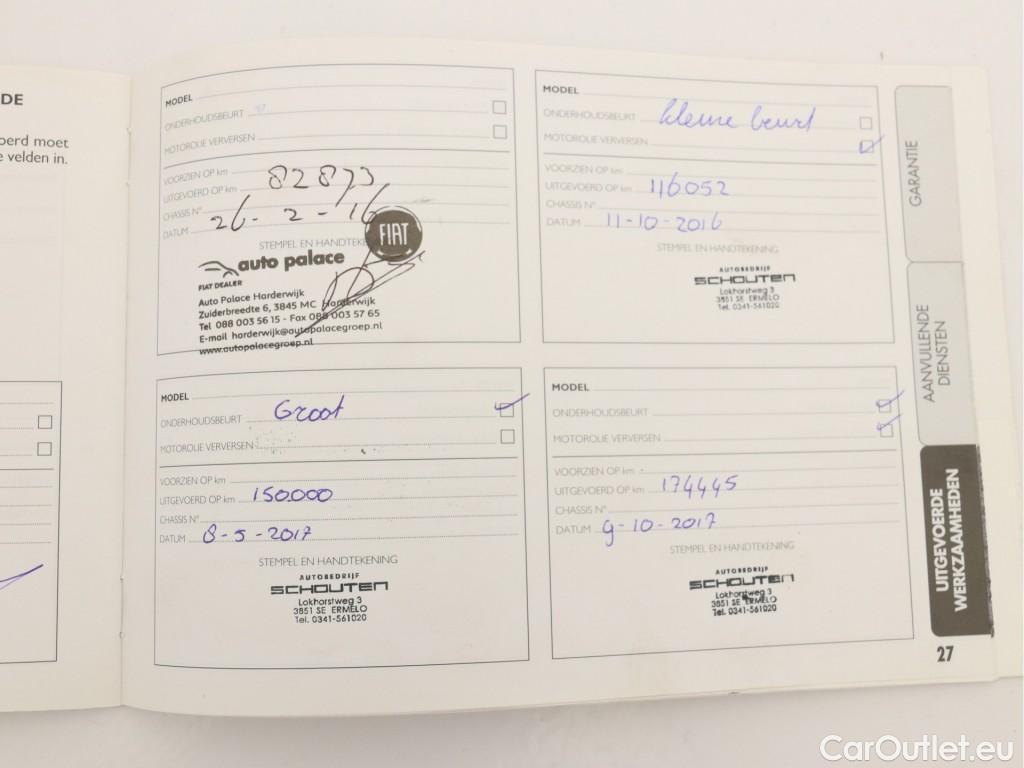 DE
oerd moet
e velden in.
MODEL
ONDERHOUDSBEURT
MOTOROLIE VERVERSEN
VOORZIEN OP km
UITGEVOERD OP km 82873
CHASSIS N°
DATUM 26-2-16
STEMPEL EN HANDTEKE
FIAT
auto palace
FIAT DEALER
Auto Palace Harderwijk
Zuiderbreedte 6, 3845 MC Harderwijk
Tel 088 003 56 15 - Fax 088 003 57 65
E-mail harderwijk@autopalacegroep.nl
www.autopalacegroep.nl
MODEL
ONDERHOUDSBEURT kleine beurt
MOTOROLIE VERVERSEN
VOORZIEN OP km
UITGEVOERD OP km 116052
CHASSIS N°
DATUM 11-10-2016
STEMPEL EN HANDTEKENING
AUTOBEDRIJF
SCHOUTEN
Lokhorstweg 3
3851 SE ERMELO
Tel. 0341-561020
MODEL
ONDERHOUDSBEURT Groot
MOTOROLIE VERVERSEN
VOORZIEN OP km
UITGEVOERD OP km 150.000
CHASSIS N°
DATUM 8-5-2017
STEMPEL EN HANDTEKENING
AUTOBEDRIJF
SCHOUTEN
Lokhorstweg 3
3851 SE ERMELO
Tel. 0341-561020
MODEL
ONDERHOUDSBEURT
MOTOROLIE VERVERSEN
VOORZIEN OP km
UITGEVOERD OP km 174445
CHASSIS N°
DATUM 9-10-2017
STEMPEL EN HANDTEKENING
AUTOBEDRIJF
SCHOUTEN
Lokhorstweg 3
3851 SE ERMELO
Tel. 0341-561020
GARANTIE
AANVULLENDE
DIENSTEN
UITGEVOERDE
WERKZAAMHEDEN
27
CarOutlet.eu